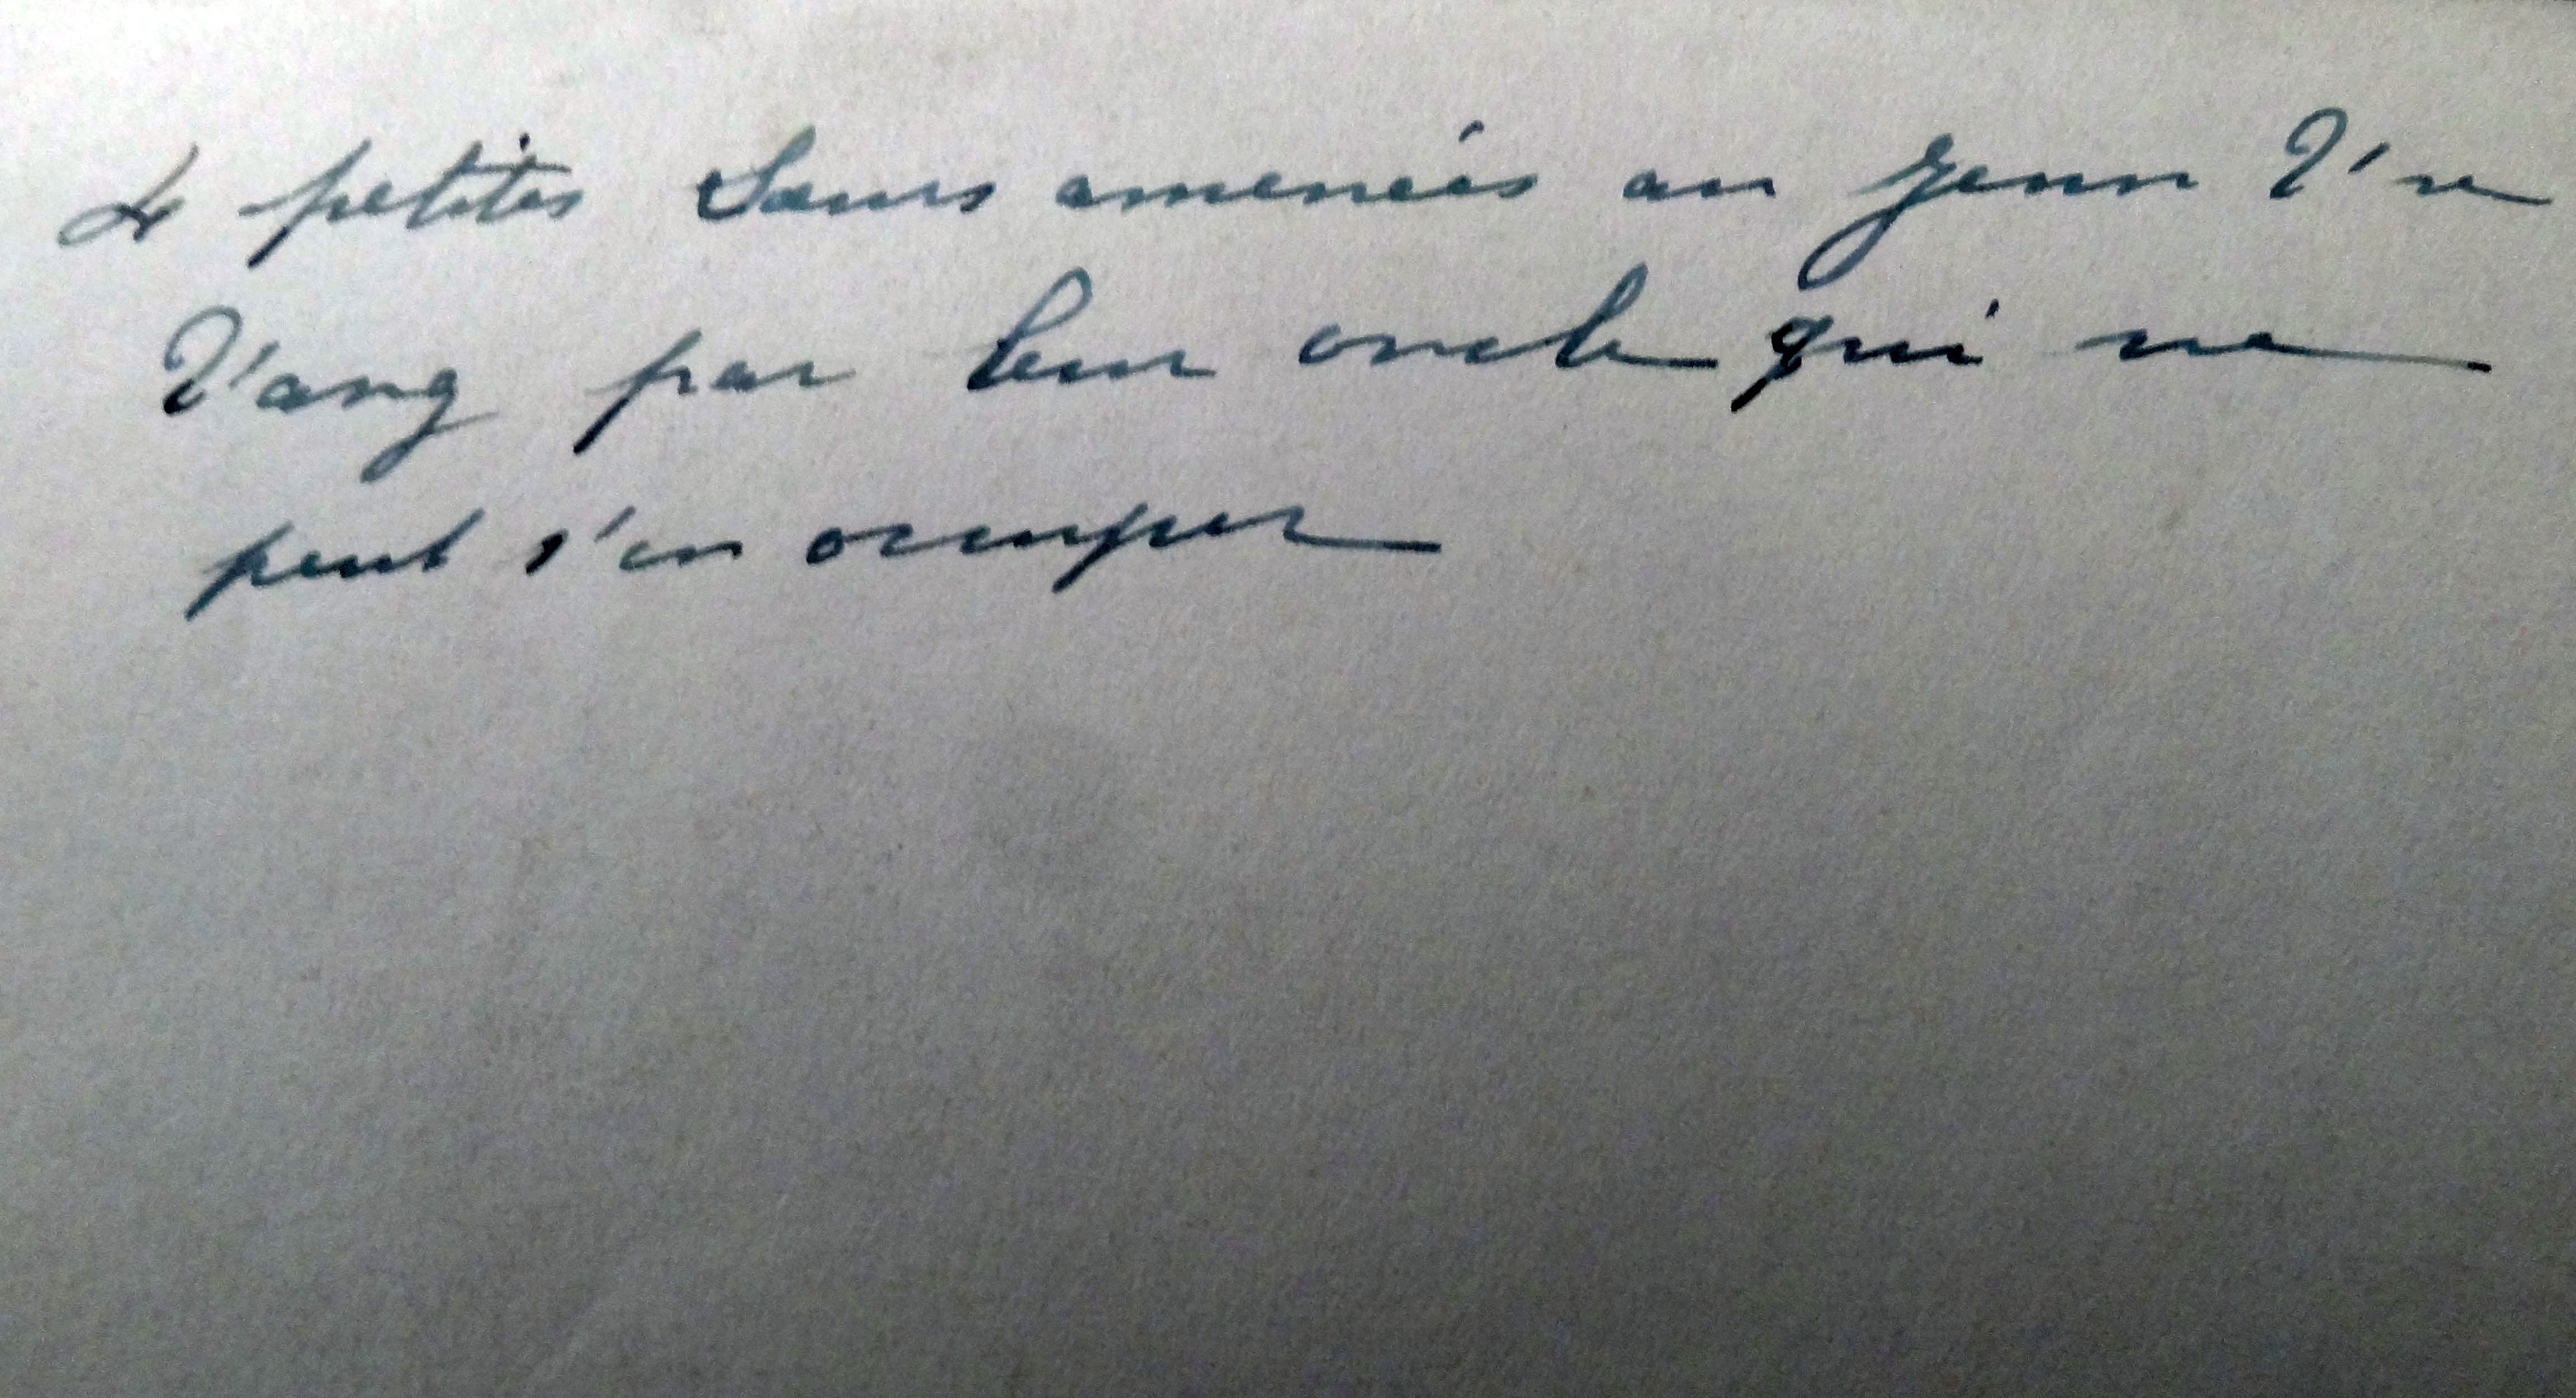 4 petites Sœurs amenées au Jenn T'se
T'ang par leur oncle qui ne
peut s'en occuper